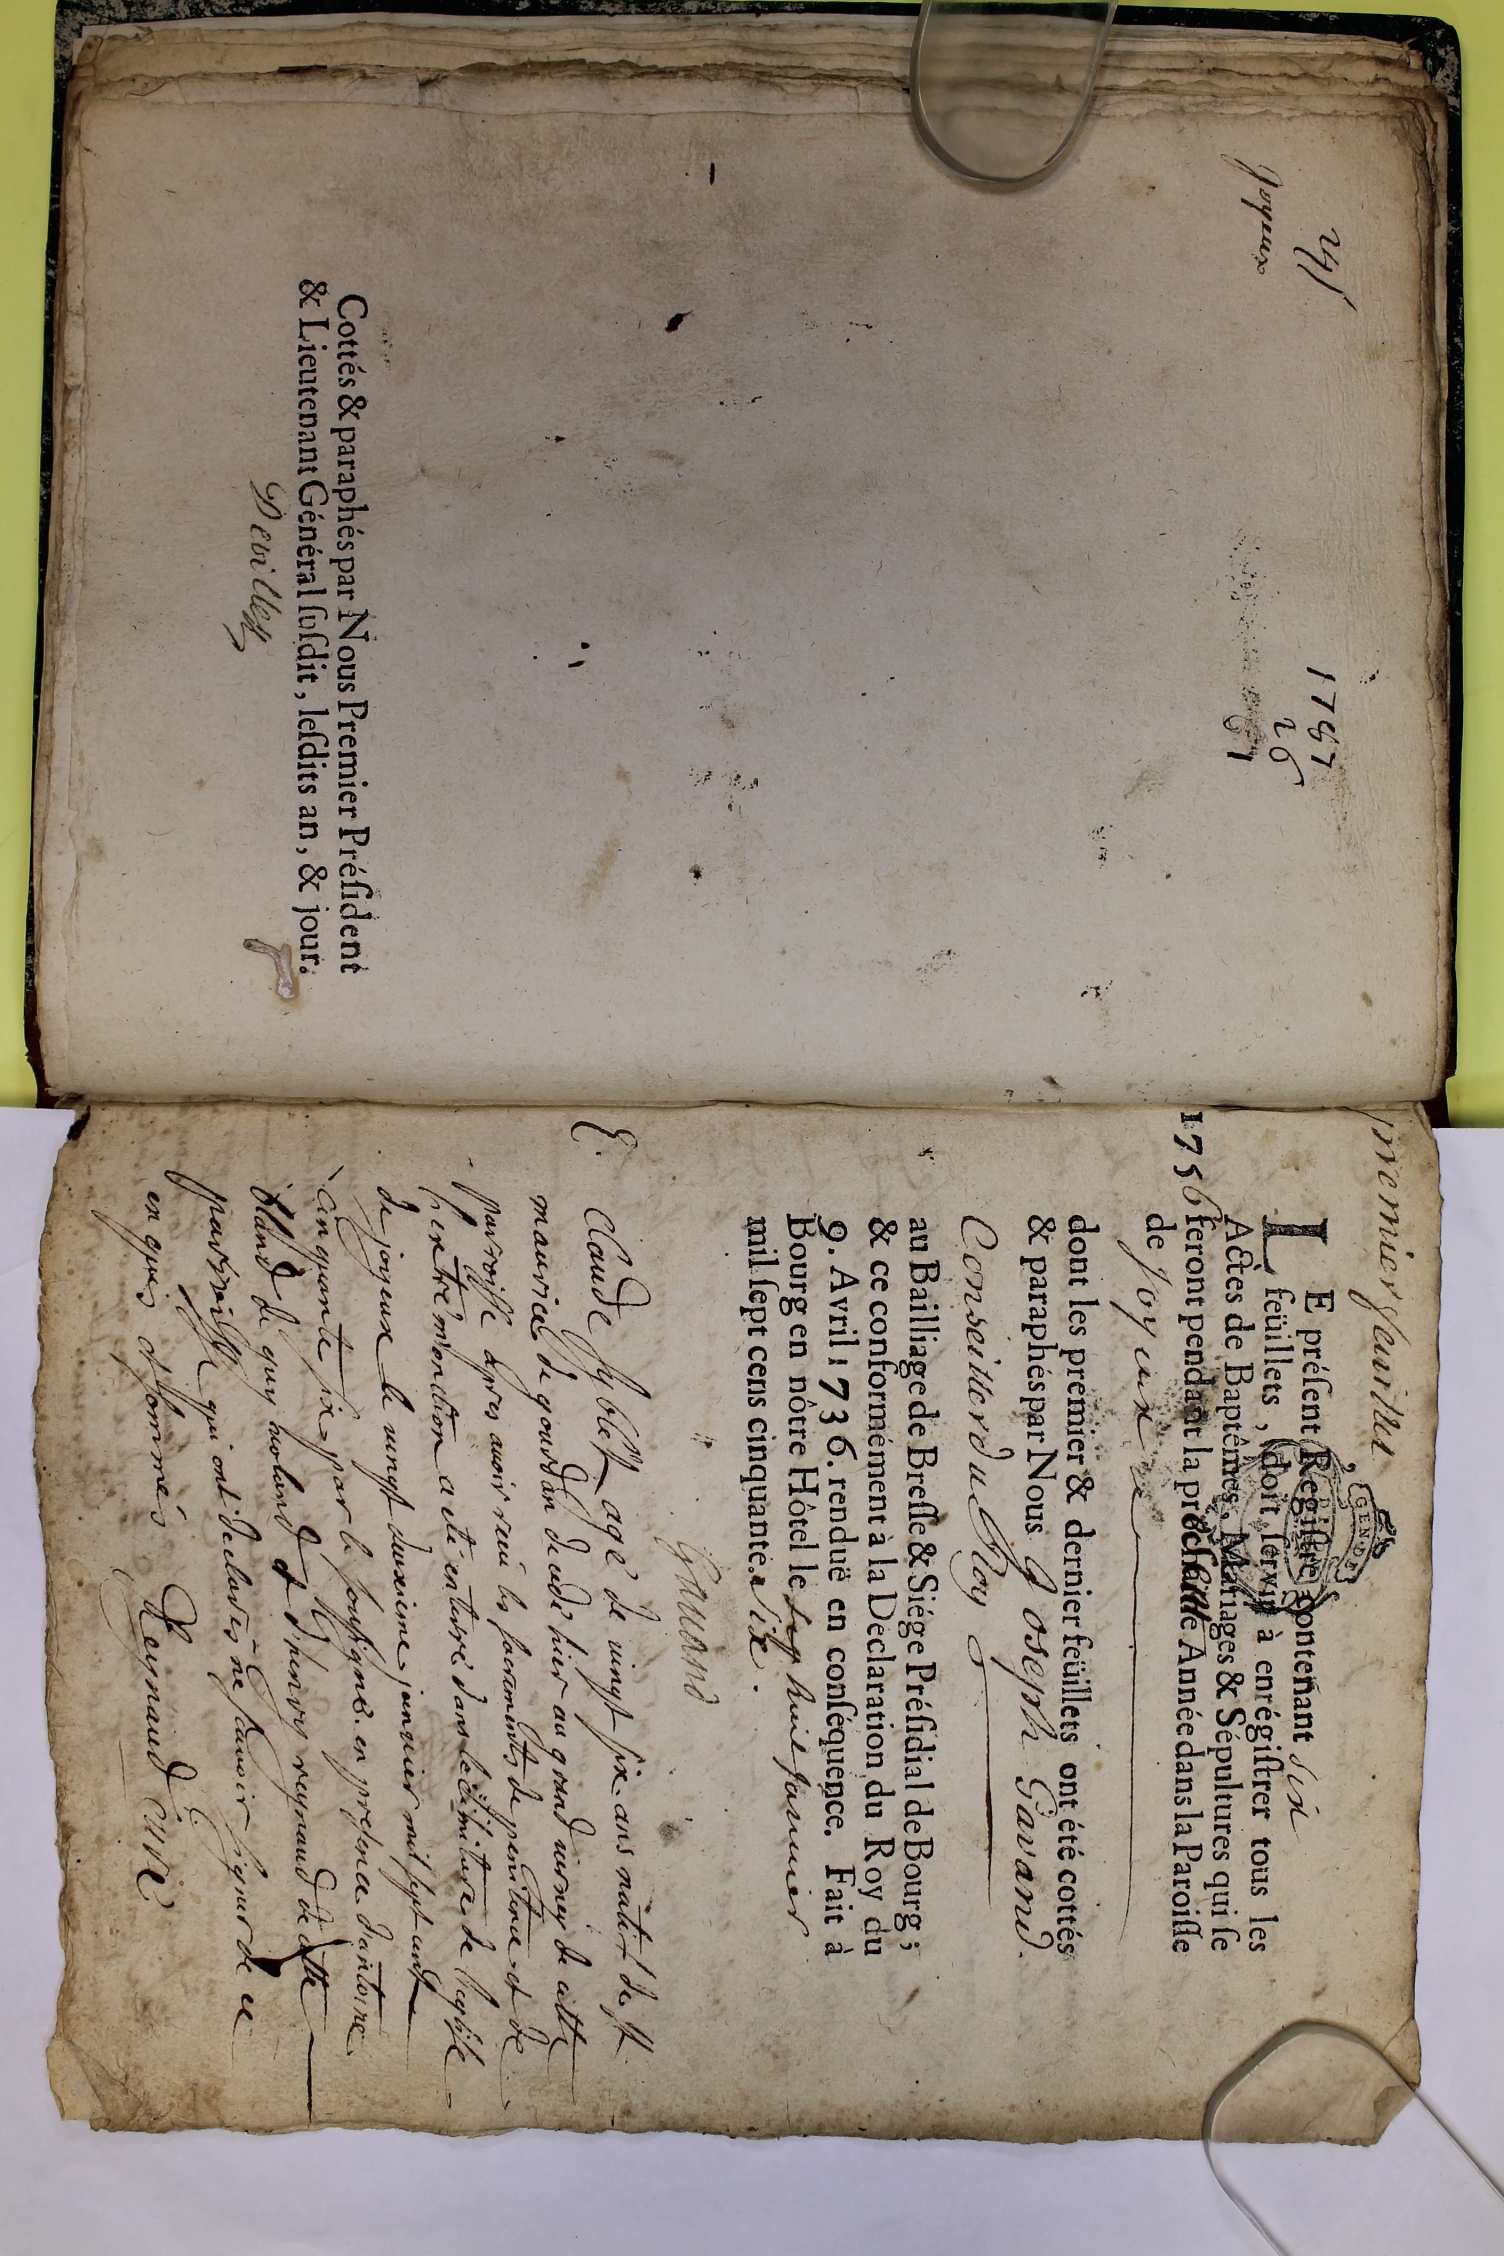 241
Joyeux
1787
26
61
Cottés & paraphés par Nous Premier Préſident
& Lieutenant Général ſuſdit, leſdits an, & jour.
Devillez
premier feuillet
LE préſent Regiſtre, contenant six
feüillets, doit ſervir à enrégiſtrer tous les
Actes de Baptêmes, Mariages & Sépultures qui ſe
1756 feront pendant la préſente Année dans la Paroiſſe
de Joyeux
dont les premier & dernier feüillets ont été cottés
& paraphés par Nous Joseph Gavand.
Conseiller du Roy
au Bailliage de Breſſe & Siége Préſidial de Bourg;
& ce conformément à la Déclaration du Roy du
9. Avril 1736. renduë en conſéquence. Fait à
Bourg en nôtre Hôtel le huit Janvier
mil ſept cens cinquante. Six.
Gavand
E. Claude agé de vingt six ans natif de st
maurice de gourdan decedé hier au grand de cette
parroisse apres avoir reçu les sacrements de penitence et de
lextreme onction a eté enterré dans le cimitiere de leglise
de joyeux le vingt deuxieme janvier mil sept cent
cinquante six par le soussigné en presence dantoine
bland de guy et reynaud de cette
parroisse qui ont declarés ne scavoir signer de ce
enquis et sommés Reynaud curé